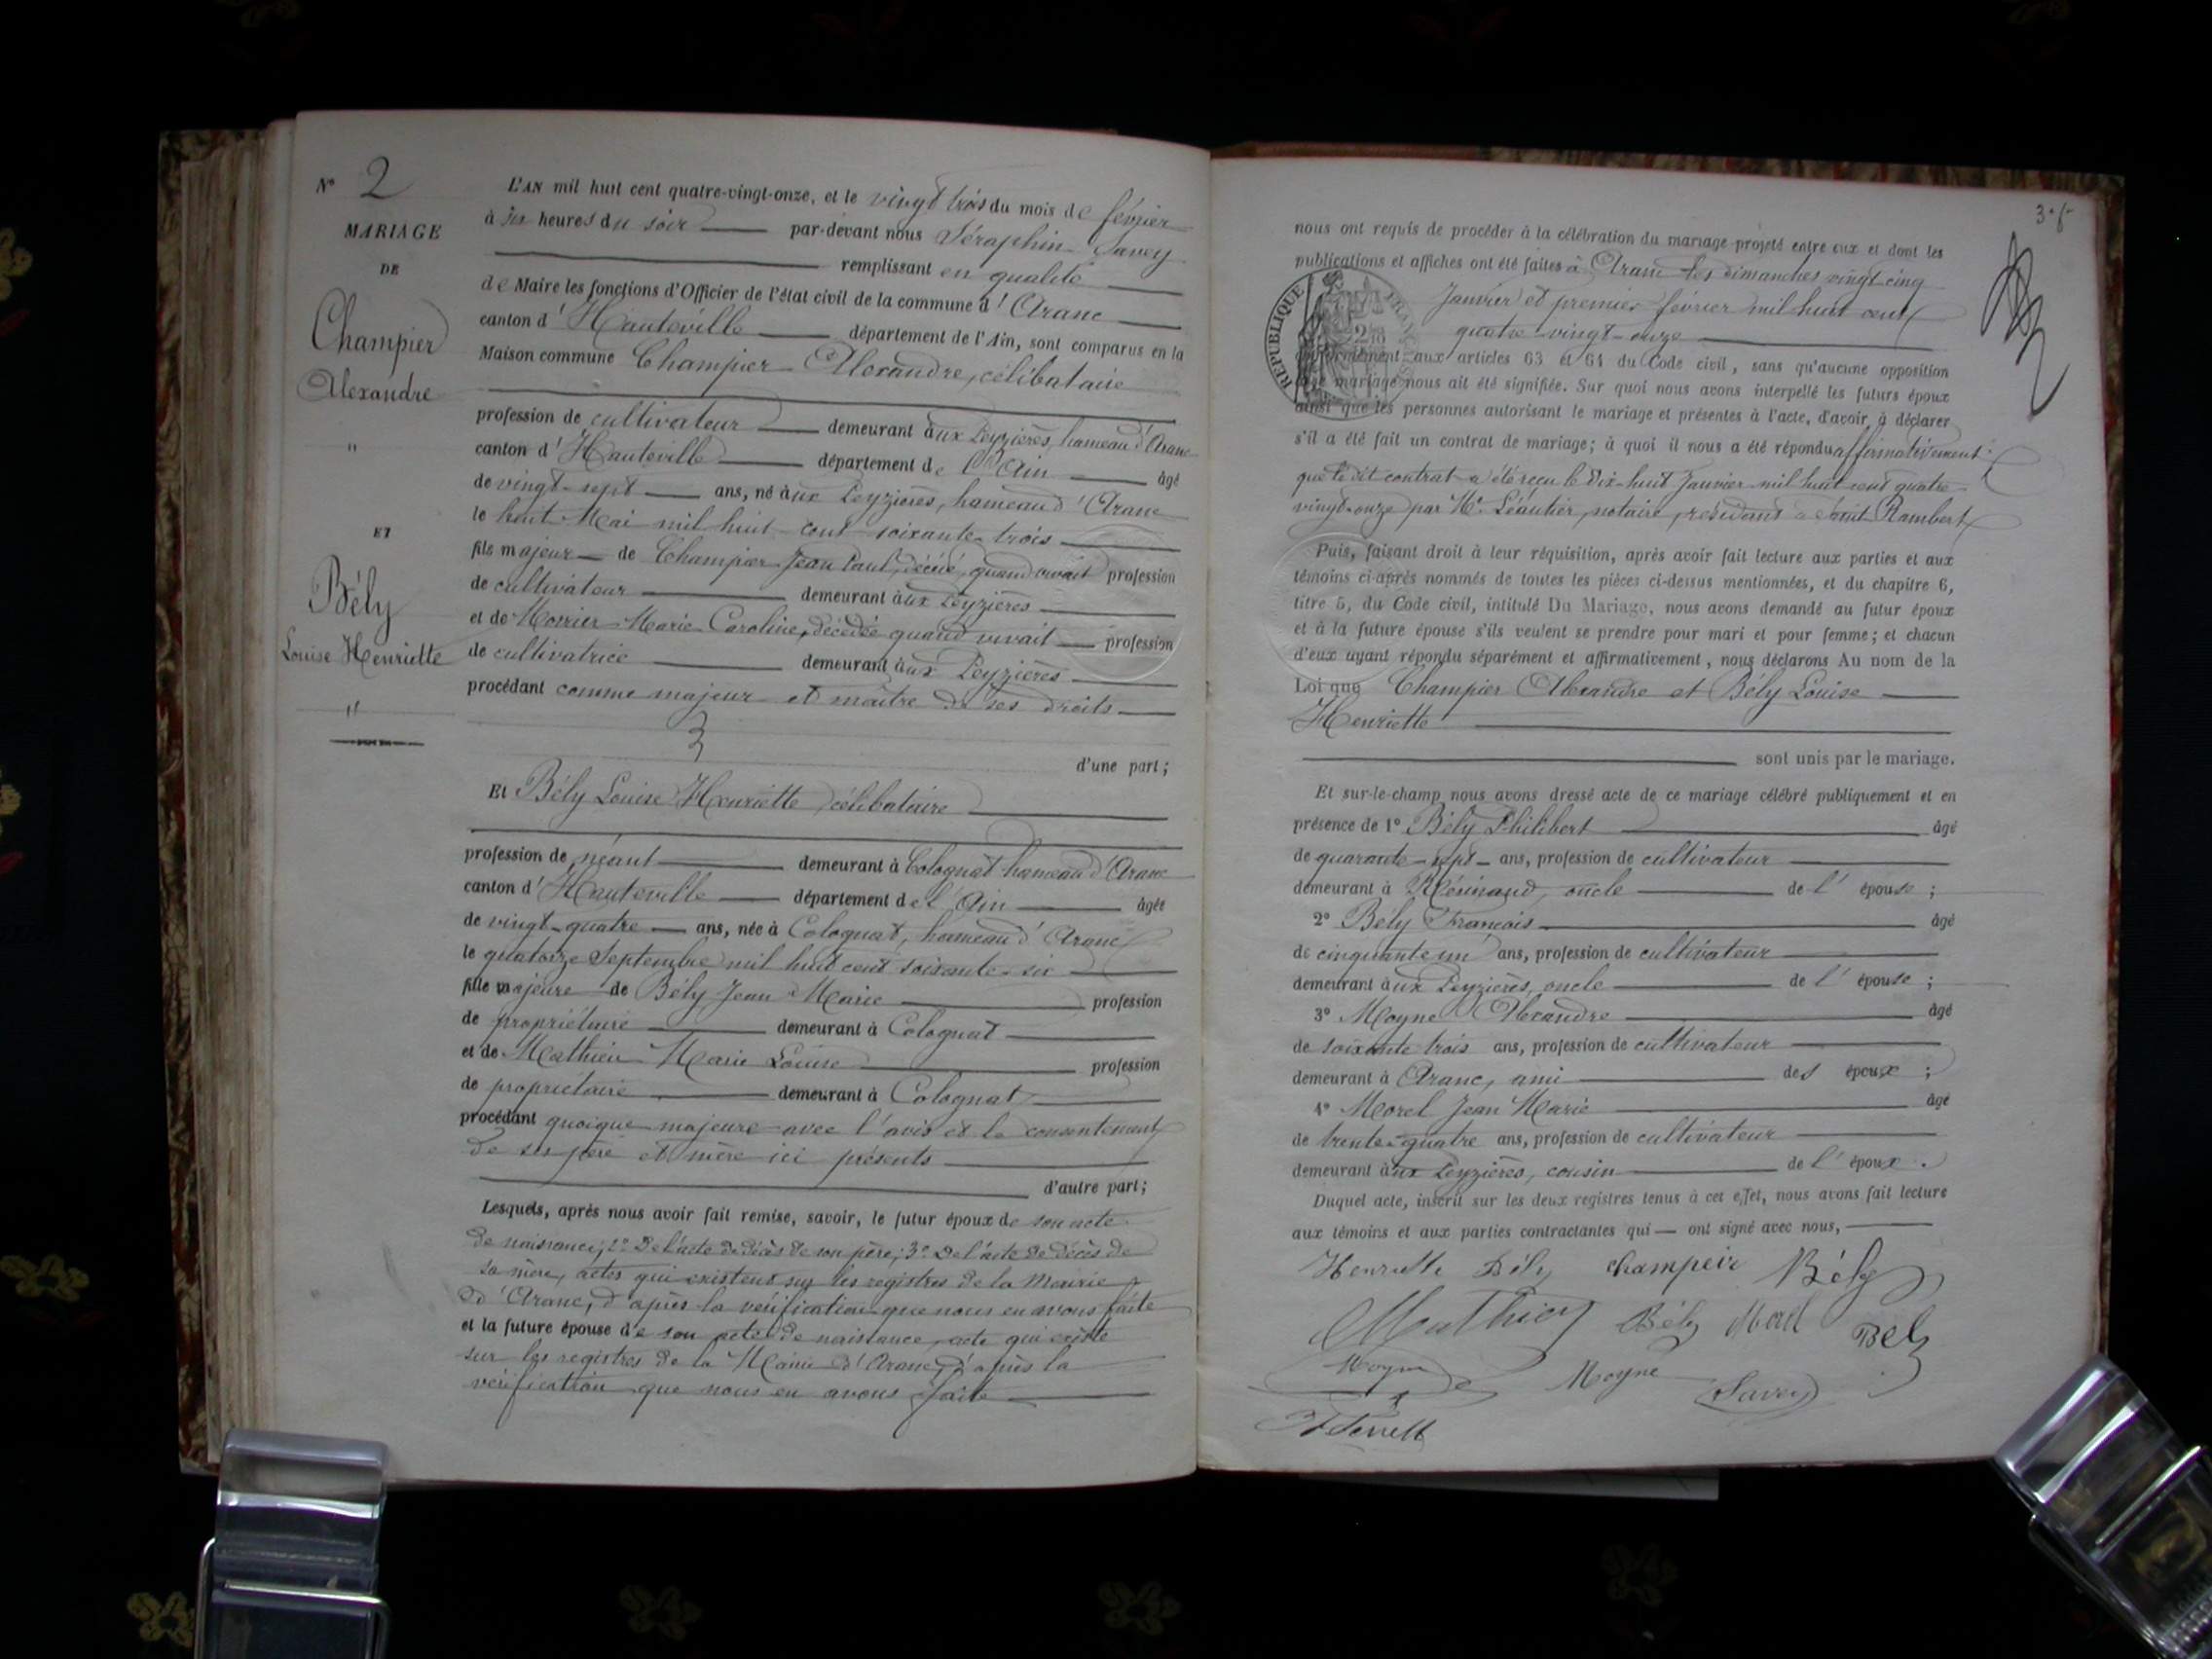 N° 2
MARIAGE
DE
Champier
Alexandre
"
ET
Bély
Louise Henriette
"
L'AN mil huit cent quatre-vingt-onze, et le vingt trois du mois de février
à six heures du soir par-devant nous Séraphin Savey
remplissant en qualité
de Maire les fonctions d'Officier de l'état civil de la commune d'Aranc
canton d'Hauteville département de l'Ain, sont comparus en la
Maison commune Champier Alexandre, célibataire
profession de cultivateur demeurant aux Leyzières, hameau d'Aranc
canton d'Hauteville département de l'Ain âgé
de vingt-sept ans, né aux Leyzières, hameau d'Aranc
le huit Mai mil huit cent soixante-trois
fils majeur de Champier Jean Paul, décédé, quand vivait profession
de cultivateur demeurant aux Leyzières
et de Morrier Marie Caroline, décédée quand vivait profession
de cultivatrice demeurant aux Leyzières
procédant comme majeur et maître de ses droits
d'une part;
Et Bély Louise Henriette célibataire
profession de néant demeurant à Colognat hameau d'Aranc
canton d'Hauteville département de l'Ain âgée
de vingt-quatre ans, née à Colognat, hameau d'Aranc
le quatorze Septembre mil huit cent soixante-six
fille majeure de Bély Jean Marie profession
de propriétaire demeurant à Colognat
et de Mathieu Marie Louise profession
de propriétaire demeurant à Colognat
procédant quoique majeure avec l'avis et le consentement
de ses père et mère ici présents
d'autre part;
Lesquels, après nous avoir fait remise, savoir, le futur époux de son acte
de naissance; 2° De l'acte de décès de son père; 3° De l'acte de décès de
sa mère, actes qui existent sur les registres de la Mairie
d'Aranc, d'après la vérification que nous en avons faite
et la future épouse de son acte de naissance, acte qui existe
sur les registres de la Mairie d'Aranc, d'après la
vérification que nous en avons faite
nous ont requis de procéder à la célébration du mariage projeté entre eux et dont les
publications et affiches ont été faites à Aranc les dimanches vingt-cinq
Janvier et premier février mil huit cent
quatre-vingt-onze
conformément aux articles 63 et 64 du Code civil, sans qu'aucune opposition
mariage nous ait été signifiée. Sur quoi nous avons interpellé les futurs époux
ainsi que les personnes autorisant le mariage et présentes à l'acte, d'avoir à déclarer
s'il a été fait un contrat de mariage; à quoi il nous a été répondu affirmativement:
que le dit contrat a été reçu le dix-huit Janvier mil huit cent quatre-
vingt-onze par Me Léautier, notaire, résidant à Saint Rambert
Puis, faisant droit à leur réquisition, après avoir fait lecture aux parties et aux
témoins ci-après nommés de toutes les pièces ci-dessus mentionnées, et du chapitre 6,
titre 5, du Code civil, intitulé Du Mariage, nous avons demandé au futur époux
et à la future épouse s'ils veulent se prendre pour mari et pour femme; et chacun
d'eux ayant répondu séparément et affirmativement, nous déclarons Au nom de la
Loi que Champier Alexandre et Bély Louise
Henriette
sont unis par le mariage.
Et sur-le-champ nous avons dressé acte de ce mariage célébré publiquement et en
présence de 1° Bély Philibert âgé
de quarante-sept ans, profession de cultivateur
demeurant à Résinand, oncle de l'épouse;
2° Bély François âgé
de cinquante un ans, profession de cultivateur
demeurant aux Leyzières, oncle de l'épouse;
3° Moyne Alexandre âgé
de soixante trois ans, profession de cultivateur
demeurant à Aranc, ami des époux;
4° Morel Jean Marie âgé
de trente-quatre ans, profession de cultivateur
demeurant aux Leyzières, cousin de l'époux.
Duquel acte, inscrit sur les deux registres tenus à cet effet, nous avons fait lecture
aux témoins et aux parties contractantes qui ont signé avec nous,
Henriette Bély champeir Bély
Mathieu Bély Morel Bely
Moyne Moyne Savey